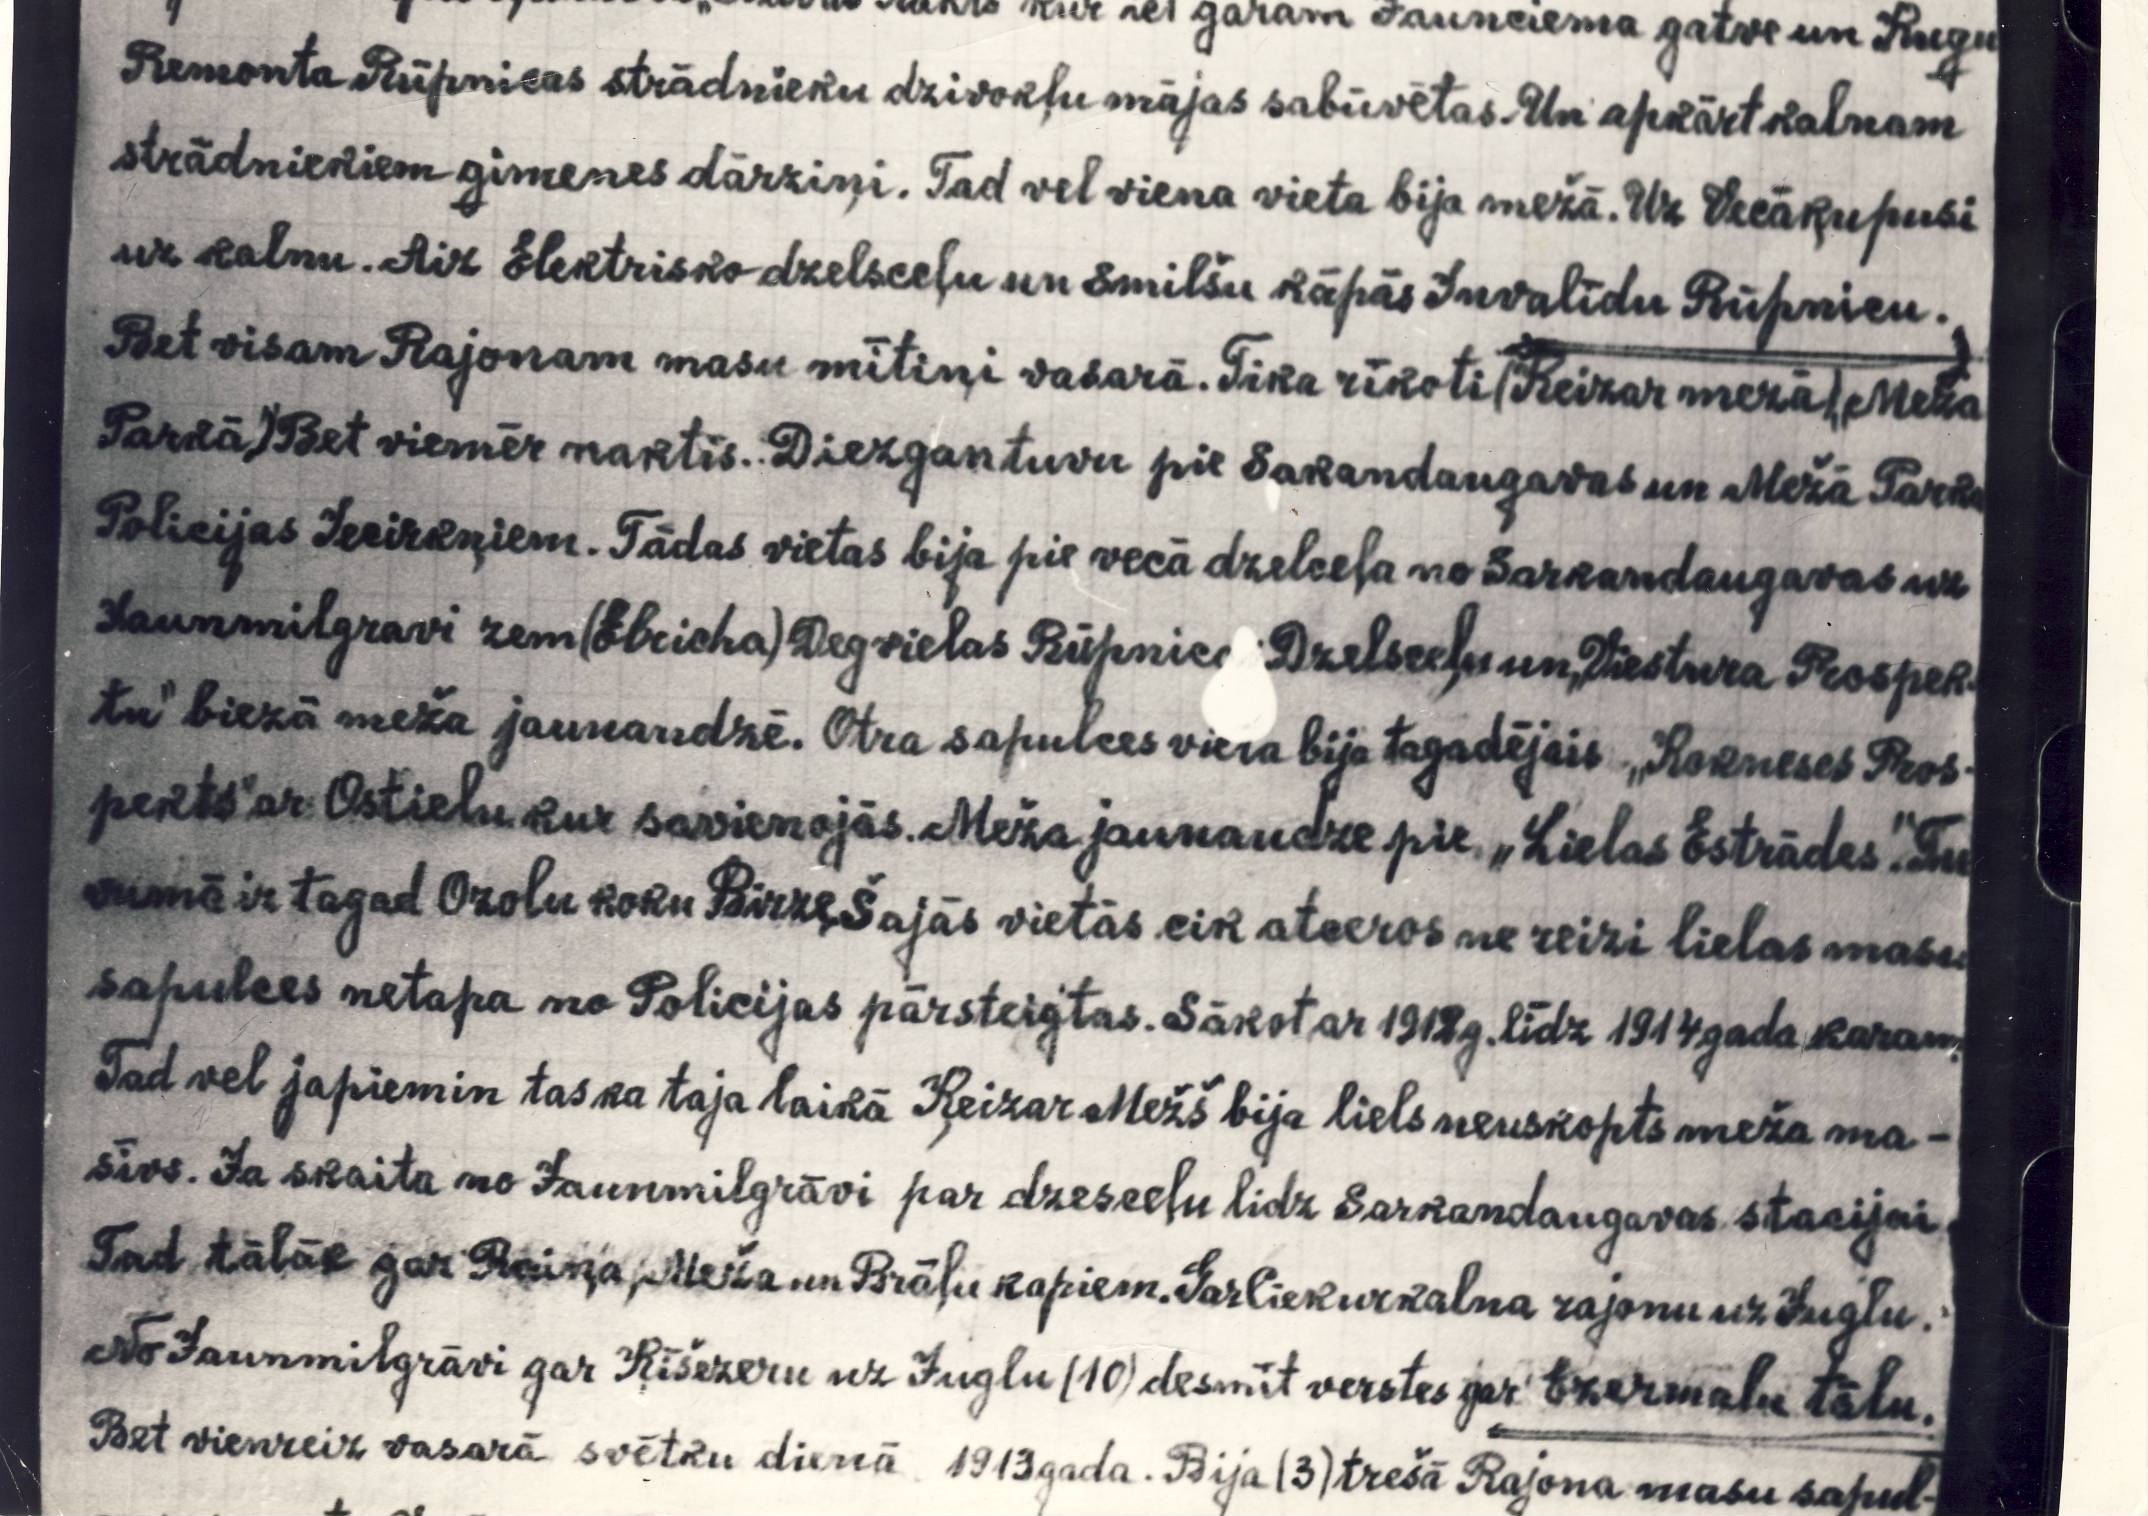 kur iet garam Jaunciema gatve un Kugu
Remonta Rūpnicas strādnieku dzivokļu mājas sabūvētas. Un apkārt kalnam
strādniekiem gimenes dārziņi. Tad vel viena vieta bija mežā. Uz Vecāķu pusi
uz kalnu. Aiz Elektrisko dzelsceļu un Smilšu kāpās Invalīdu Rūpnicu.
Bet visam Rajonam masu mītiņi vasarā. Tika rīkoti (Ķeizar mežā) „Meža
Parkā) Bet vienmēr naktīs. Diezgan tuvu pie Sakandaugavas un Mežā Parka
Policijas Iecirkņiem. Tādas vietas bija pie vecā dzelceļa no Sarkandaugavas uz
Jaunmilgravi zem (Ebricha) Degvielas Rūpnica Dzelsceļu un „Viestura Prospek-
tu" biezā meža jaunaudzē. Otra sapulces vieta bija tagadējais „Kokneses Pros-
pekts" ar Ostielu kur savienojās. Meža jaunaudze pie „Lielas Estrādes". Tu
vumā ir tagad Ozolu koku Birze, Šajās vietās cik atceros ne reizi lielas masu
sapulces netapa no Policijas pārsteigtas. Sākot ar 1912g. līdz 1914 gada karam.
Tad vel japiemin tas ka taja laikā Ķeizar Mežš bija liels neuskopts meža ma-
sīvs. Ja skaita no Jaunmilgrāvi par dzesceļu lidz Sarkandaugavas stacijai.
Tad tālāk gar Raiņa, Meža un Brāļu kapiem. Gar Ciekurkalna rajonu uz Juglu.
No Jaunmilgrāvi gar Ķīšezeru uz Juglu (10) desmit verstes gar Ezermalu tālu.
Bet vienreiz vasarā svētku dienā 1913 gada. Bija (3) trešā Rajona masu sapul-